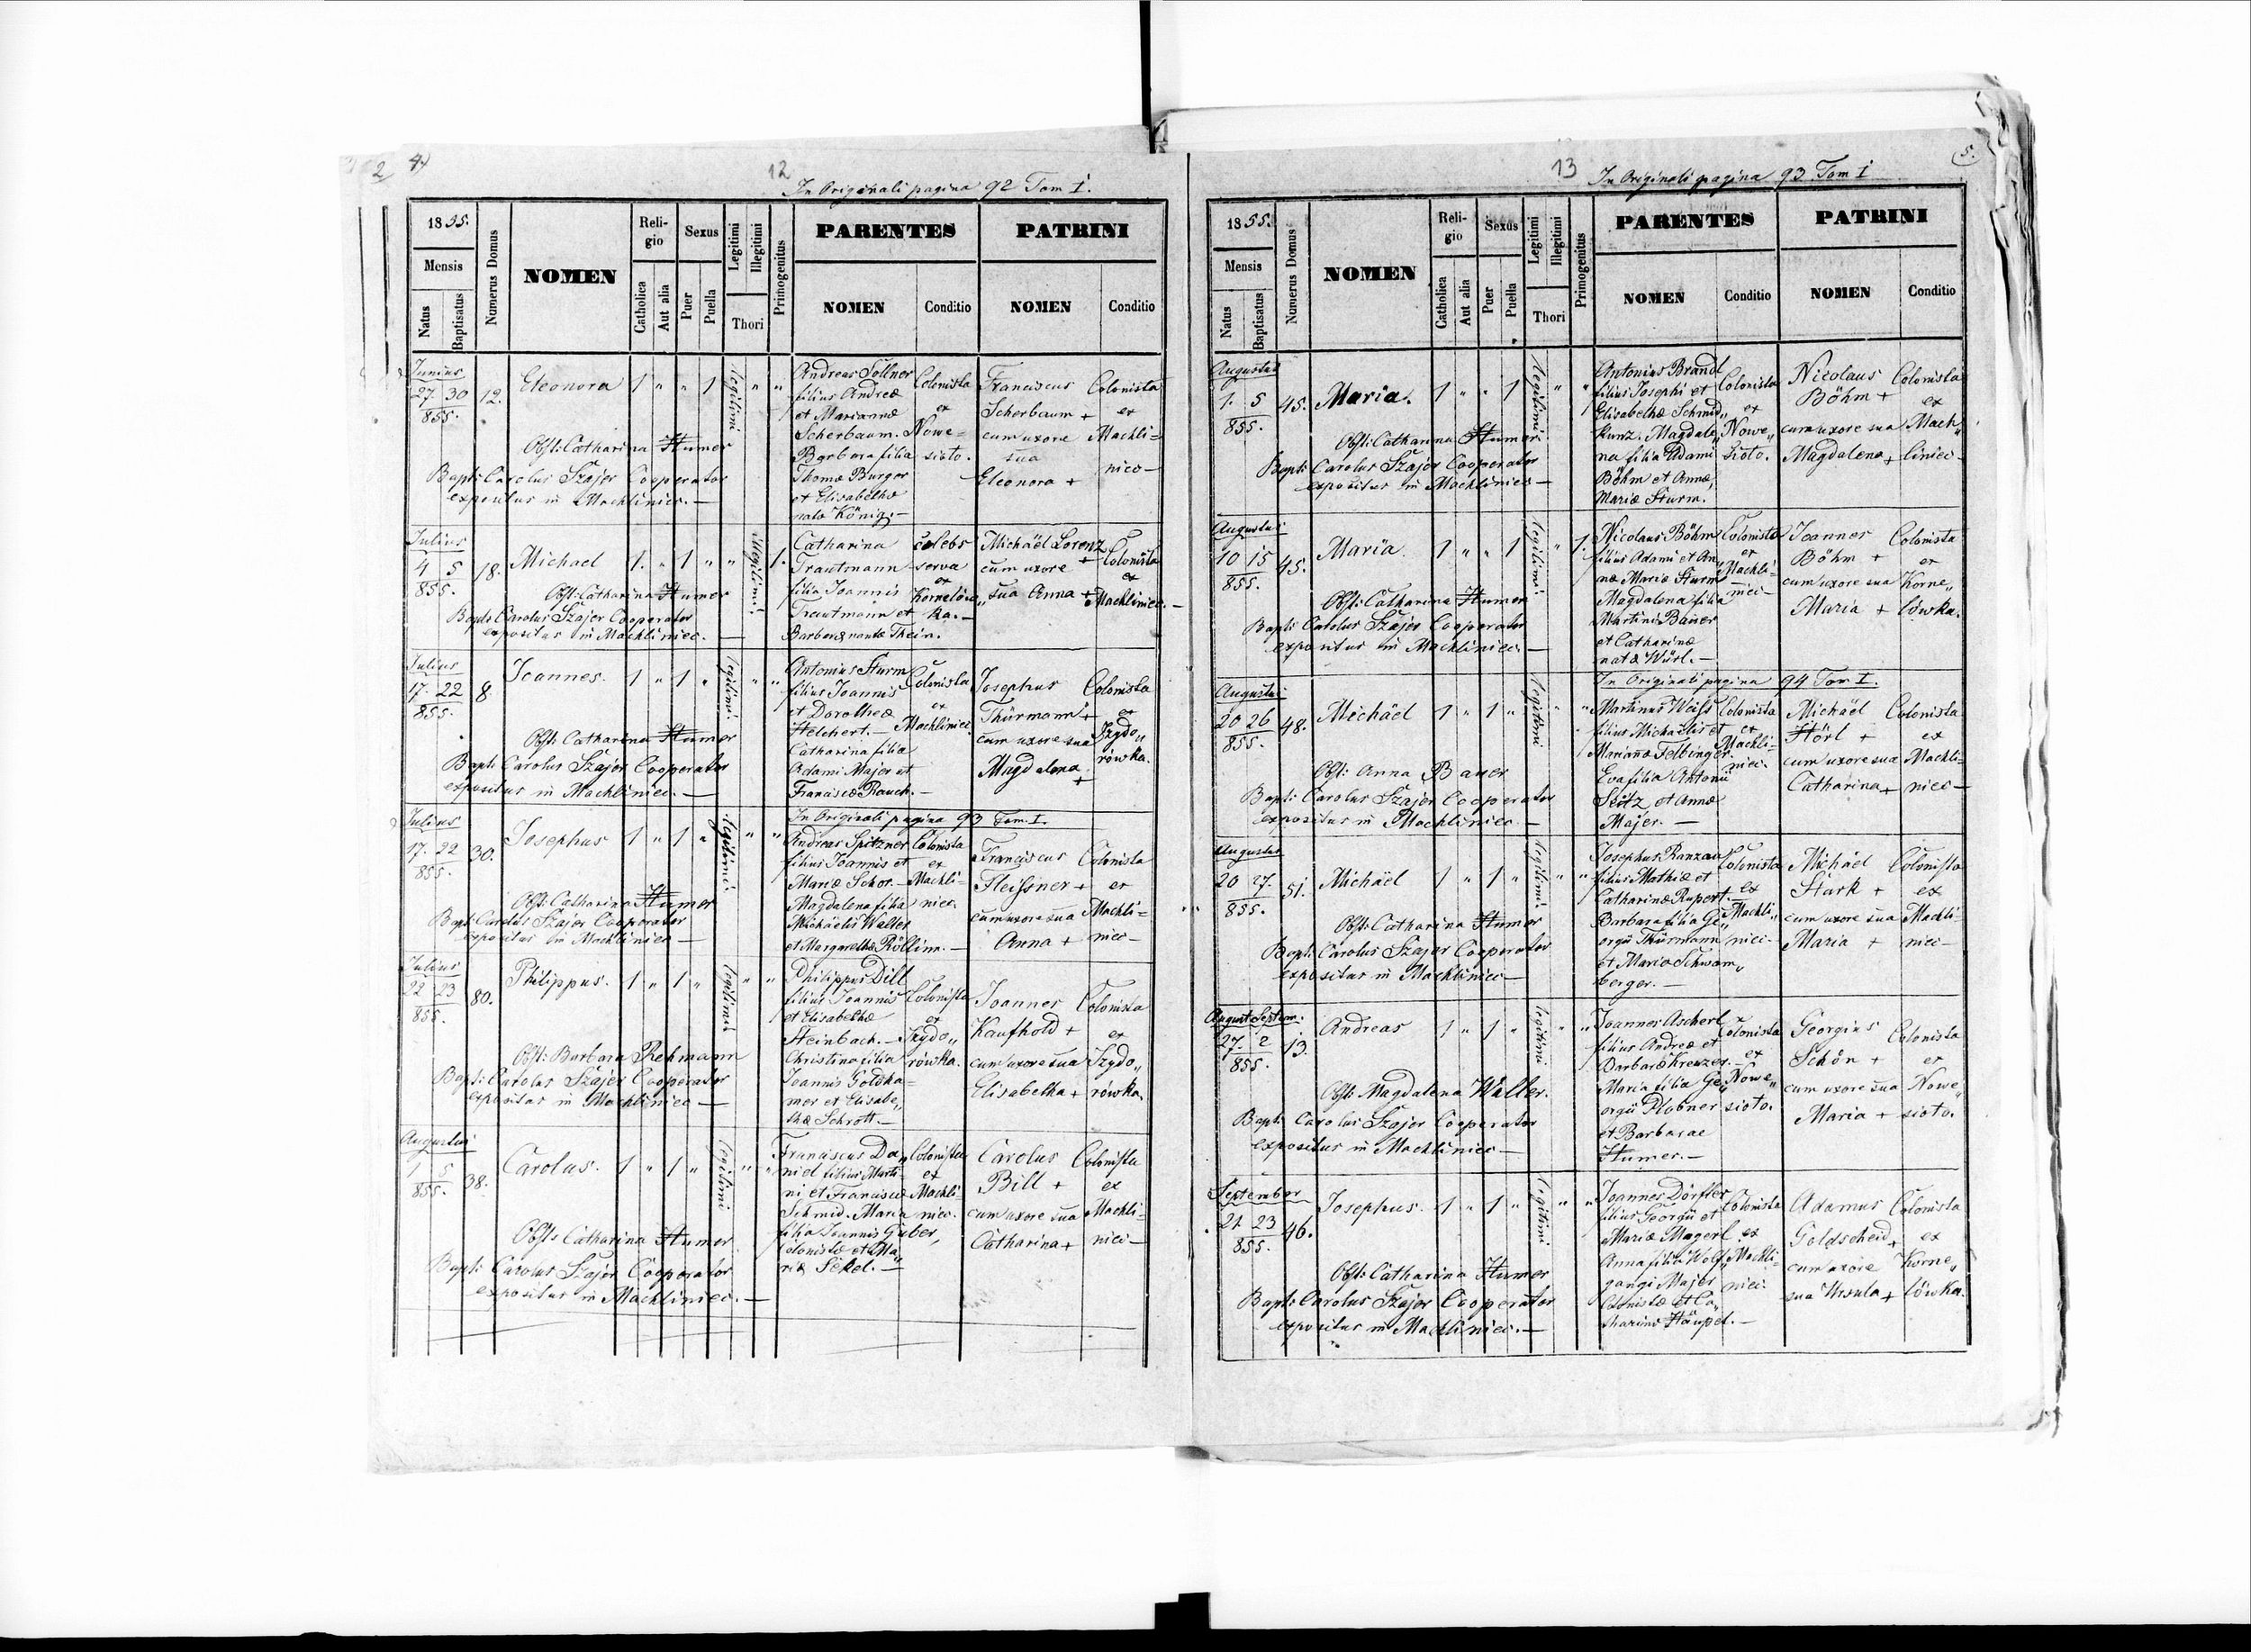 2 4.)
12
In Originali pagina 92 Tom I.
1855.
Mensis
Natus
Baptisatus
Numerus Domus
NOMEN
Religio
Catholica
Aut alia
Sexus
Puer
Puella
Legitimi
Illegitimi
Thori
Primogenitus
PARENTES
NOMEN
Conditio
PATRINI
NOMEN
Conditio
Junius
27. 30
855.
12.
Eleonora
1 " " 1
legitimi
" "
Obst: Catharina Humer
Bapt: Carolus Szajor Cooperator
expositus in Machliniec. —
Andreas Söllner
filius Andreæ
et Mariannæ
Scherbaum.
Barbara filia
Thomæ Burger
et Elisabethæ
natæ König. —
Colonista
ex
Nowe=
sioto.
Franciscus
Scherbaum +
cum uxore
sua
Eleonora +
Colonista
ex
Machli=
niec —
Julius
4 5
855.
18.
Michael
1. " 1 " "
illegitimi
1.
Obst: Catharina Humer
Bapt: Carolus Szajor Cooperator
expositus in Machliniec. —
Catharina
Trautmann
filia Joannis
Trautmann et
Barbaræ natæ Thein.
cælebs
serva
ex
Kornelów„
ka. —
Michaël Lorenz
cum uxore +
sua Anna +
Colonista
ex
Machliniec. —
Julius
17. 22
855.
8.
Joannes.
1 " 1 "
legitimi
" "
Obst: Catharina Humer
Bapt: Carolus Szajor Cooperator
expositus in Machliniec. —
Antonius Sturm
filius Joannis
et Dorotheæ
Helchert. —
Catharina filia
Adami Majer et
Franciscæ Rauch. —
Colonista
ex
Machliniec.
Josephus
Thürmann +
cum uxore sua
Magdalena
+
Colonista
ex
Izydo„
rówka.
Julius
17. 22
855.
30.
Josephus
1 " 1 "
legitimi
" "
Obst: Catharina Humer
Bapt: Carolus Szajor Cooperator
expositus in Machliniec —
In Originali pagina 93 Tom. I.
Andreas Spitzner
filius Joannis et
Mariæ Schor. —
Magdalena filia
Michaëlis Walter
et Margarethæ Röllim. —
Colonista
ex
Machli=
niec.
Franciscus
Fleißner +
cum uxore sua
Anna +
Colonista
ex
Machli=
niec —
Julius
22 23
855.
80.
Philippus.
1 " 1 "
legitimi
" "
Obst: Barbara Rehmann
Bapt: Carolus Szajer Cooperator
expositus in Machliniec —
Philippus Dill
filius Joannis
et Elisabethæ
Steinbach. —
Christina filia
Joannis Goldha=
mer et Elisabe„
thæ Schrott. —
Colonista
ex
Izydo„
rówka.
Joannes
Kaufhold +
cum uxore sua
Elisabetha +
Colonista
ex
Izydo„
rówka.
Augustus
1 5
855.
38.
Carolus.
1 " 1 "
legitimi
" "
Obst: Catharina Humer
Bapt: Carolus Szajor Cooperator
expositus in Machliniec. —
Franciscus Da„
niel filius Marti=
ni et Franciscæ
Schmid. Maria
filia Joannis Guber,
Colonistæ et Ma„
riæ Sekel. —
Colonista
ex
Machli=
niec.
Carolus
Bill +
cum uxore sua
Catharina +
Colonista
ex
Machli=
niec —
5.
13
In Originali pagina 93 Tom I
1855.
Mensis
Natus
Baptisatus
Numerus Domus
NOMEN
Religio
Catholica
Aut alia
Sexus
Puer
Puella
Legitimi
Illegitimi
Thori
Primogenitus
PARENTES
NOMEN
Conditio
PATRINI
NOMEN
Conditio
Augustus
1. 5
855.
45.
Maria.
1 " " 1
legitimi
" "
Obst: Catharina Humer.
Bapt: Carolus Szajor Cooperator
expositus in Machliniec —
Antonius Brandl
filius Josephi et
Elisabethæ Schmid„
kunz. Magdale„
na filia Adami
Böhm et Annæ
Mariæ Sturm.
Colonista
ex
Nowe„
sioto.
Nicolaus
Böhm +
cum uxore sua
Magdalena +
Colonista
ex
Mach„
liniec —
Augustus
10 15
855.
45.
Maria.
1 " " 1
legitimi
" 1.
Obst: Catharina Humer
Bapt: Carolus Szajer Cooperator
expositus in Machliniec. —
Nicolaus Böhm
filius Adami et An„
næ Mariæ Sturm
Magdalena filia
Martini Bauer
et Catharinæ
natæ Würl. —
Colonista
ex
Machli=
niec —
Joannes
Böhm +
cum uxore sua
Maria +
Colonista
ex
Korne„
lówka.
Augustus
20 26
855.
48.
Michäel
1 " 1 "
legitimi
" "
Obst: Anna Bauer
Bapt: Carolus Szajor Cooperator
expositus in Machliniec —
In Originali pagina 94 Tom I.
Martinus Weiss
filius Michaëlis et
Mariannæ Felbinger.
Eva filia Antonii
Stötz et Annæ
Majer. —
Colonista
ex
Machli=
niec.
Michäel
Hörl +
cum uxore sua
Catharina +
Colonista
ex
Machli=
niec —
Augustus
20 27.
855.
51.
Michäel
1 " 1 "
legitimi
" "
Obst: Catharina Humer
Bapt: Carolus Szajor Cooperator
expositus in Machliniec —
Josephus Ranzau
filius Mathiæ et
Catharinæ Rupert.
Barbara filia Ge„
orgii Thürmann
et Mariæ Schwam„
berger. —
Colonista
ex
Machli„
niec —
Michäel
Stark +
cum uxore sua
Maria +
Colonista
ex
Machli=
niec —
August Septem:
27. 2
855.
13.
Andreas
1 " 1 "
legitimi
" "
Obst: Magdalena Walter.
Bapt: Carolus Szajor Cooperator
expositus in Machliniec —
Joannes Ascherl
filius Andreæ et
Barbaræ Kreuzer.
Maria filia Ge„
orgii Plobner
et Barbarae
Humer. —
Colonista
ex
Nowe„
sioto.
Georgius
Schön +
cum uxore sua
Maria +
Colonista
ex
Nowe„
sioto.
September
21 23
855.
46.
Josephus.
1 " 1 "
legitimi
" "
Obst: Catharina Humer
Bapt: Carolus Szajor Cooperator
expositus in Machliniec. —
Joannes Dörfler
filius Georgii et
Mariæ Magerl
Anna filia Wolf„
gangi Majer
Colonistæ et Ca„
tharinæ Häupel. —
Colonista
ex
Machli=
niec.
Adamus
Goldscheid +
cum uxore
sua Ursula +
Colonista
ex
Korne„
lówka.